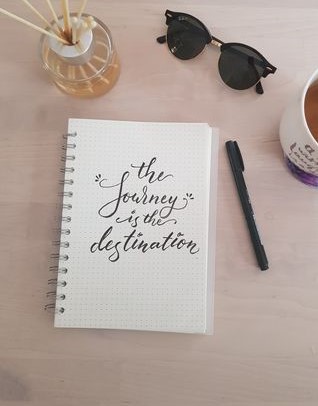 the
Journey
is the
destination
a